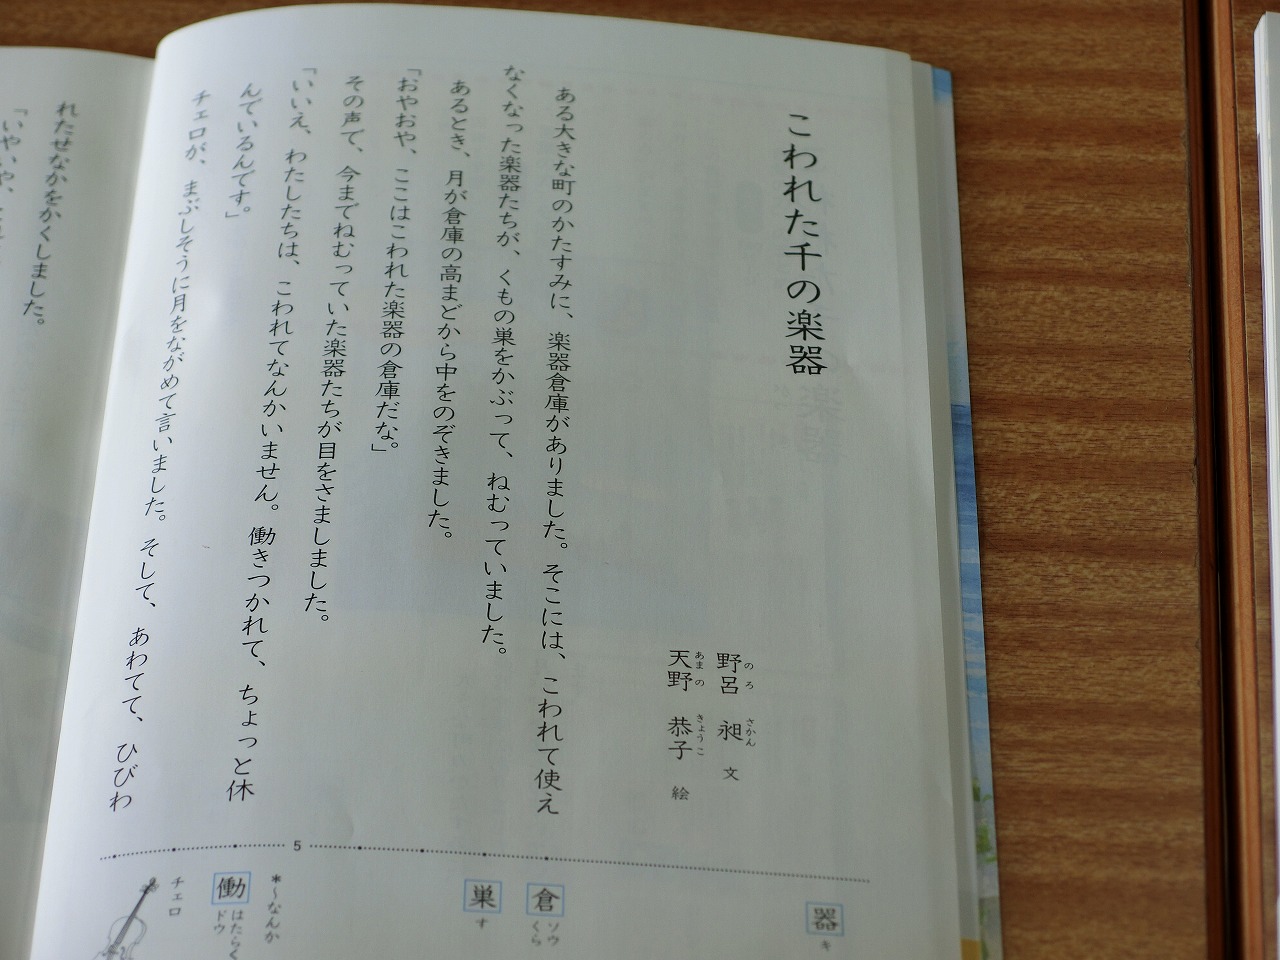 こわれた千の楽器
野呂 昶 文
のろ さかん
天野 恭子 絵
あまの きょうこ
ある大きな町のかたすみに、楽器倉庫がありました。そこには、こわれて使え
なくなった楽器たちが、くもの巣をかぶって、ねむっていました。
あるとき、月が倉庫の高まどから中をのぞきました。
「おやおや、ここはこわれた楽器の倉庫だな。」
その声で、今までねむっていた楽器たちが目をさましました。
「いいえ、わたしたちは、こわれてなんかいません。働きつかれて、ちょっと休
んでいるんです。」
チェロが、まぶしそうに月をながめて言いました。そして、あわてて、ひびわ
5
器
キ
倉
ソウ
くら
巣
す
*〜なんか
働
はたらく
ドウ
チェロ
れたせなかをかくしました。
「いやいや、